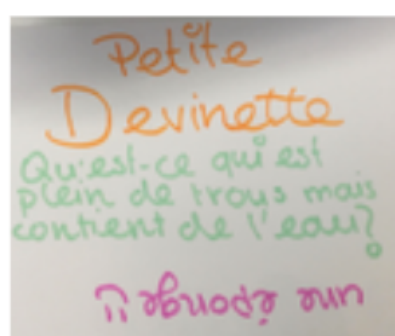 Petite
Devinette
Qu'est-ce qui est
plein de trous mais
contient de l'eau?
une éponge !!